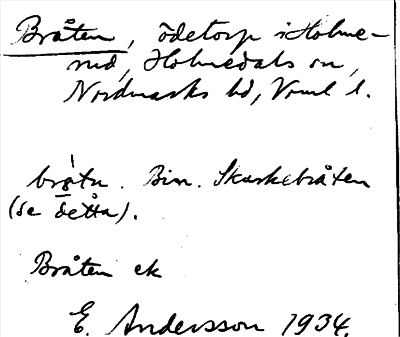 Bråten, ödetorp i Holme-
rud, Holmedals sn,
Nordmarks hd, Vrml l.
bråtn. Bin. Skarkebråten
(se detta).
Bråten ek
E. Andersson 1934.